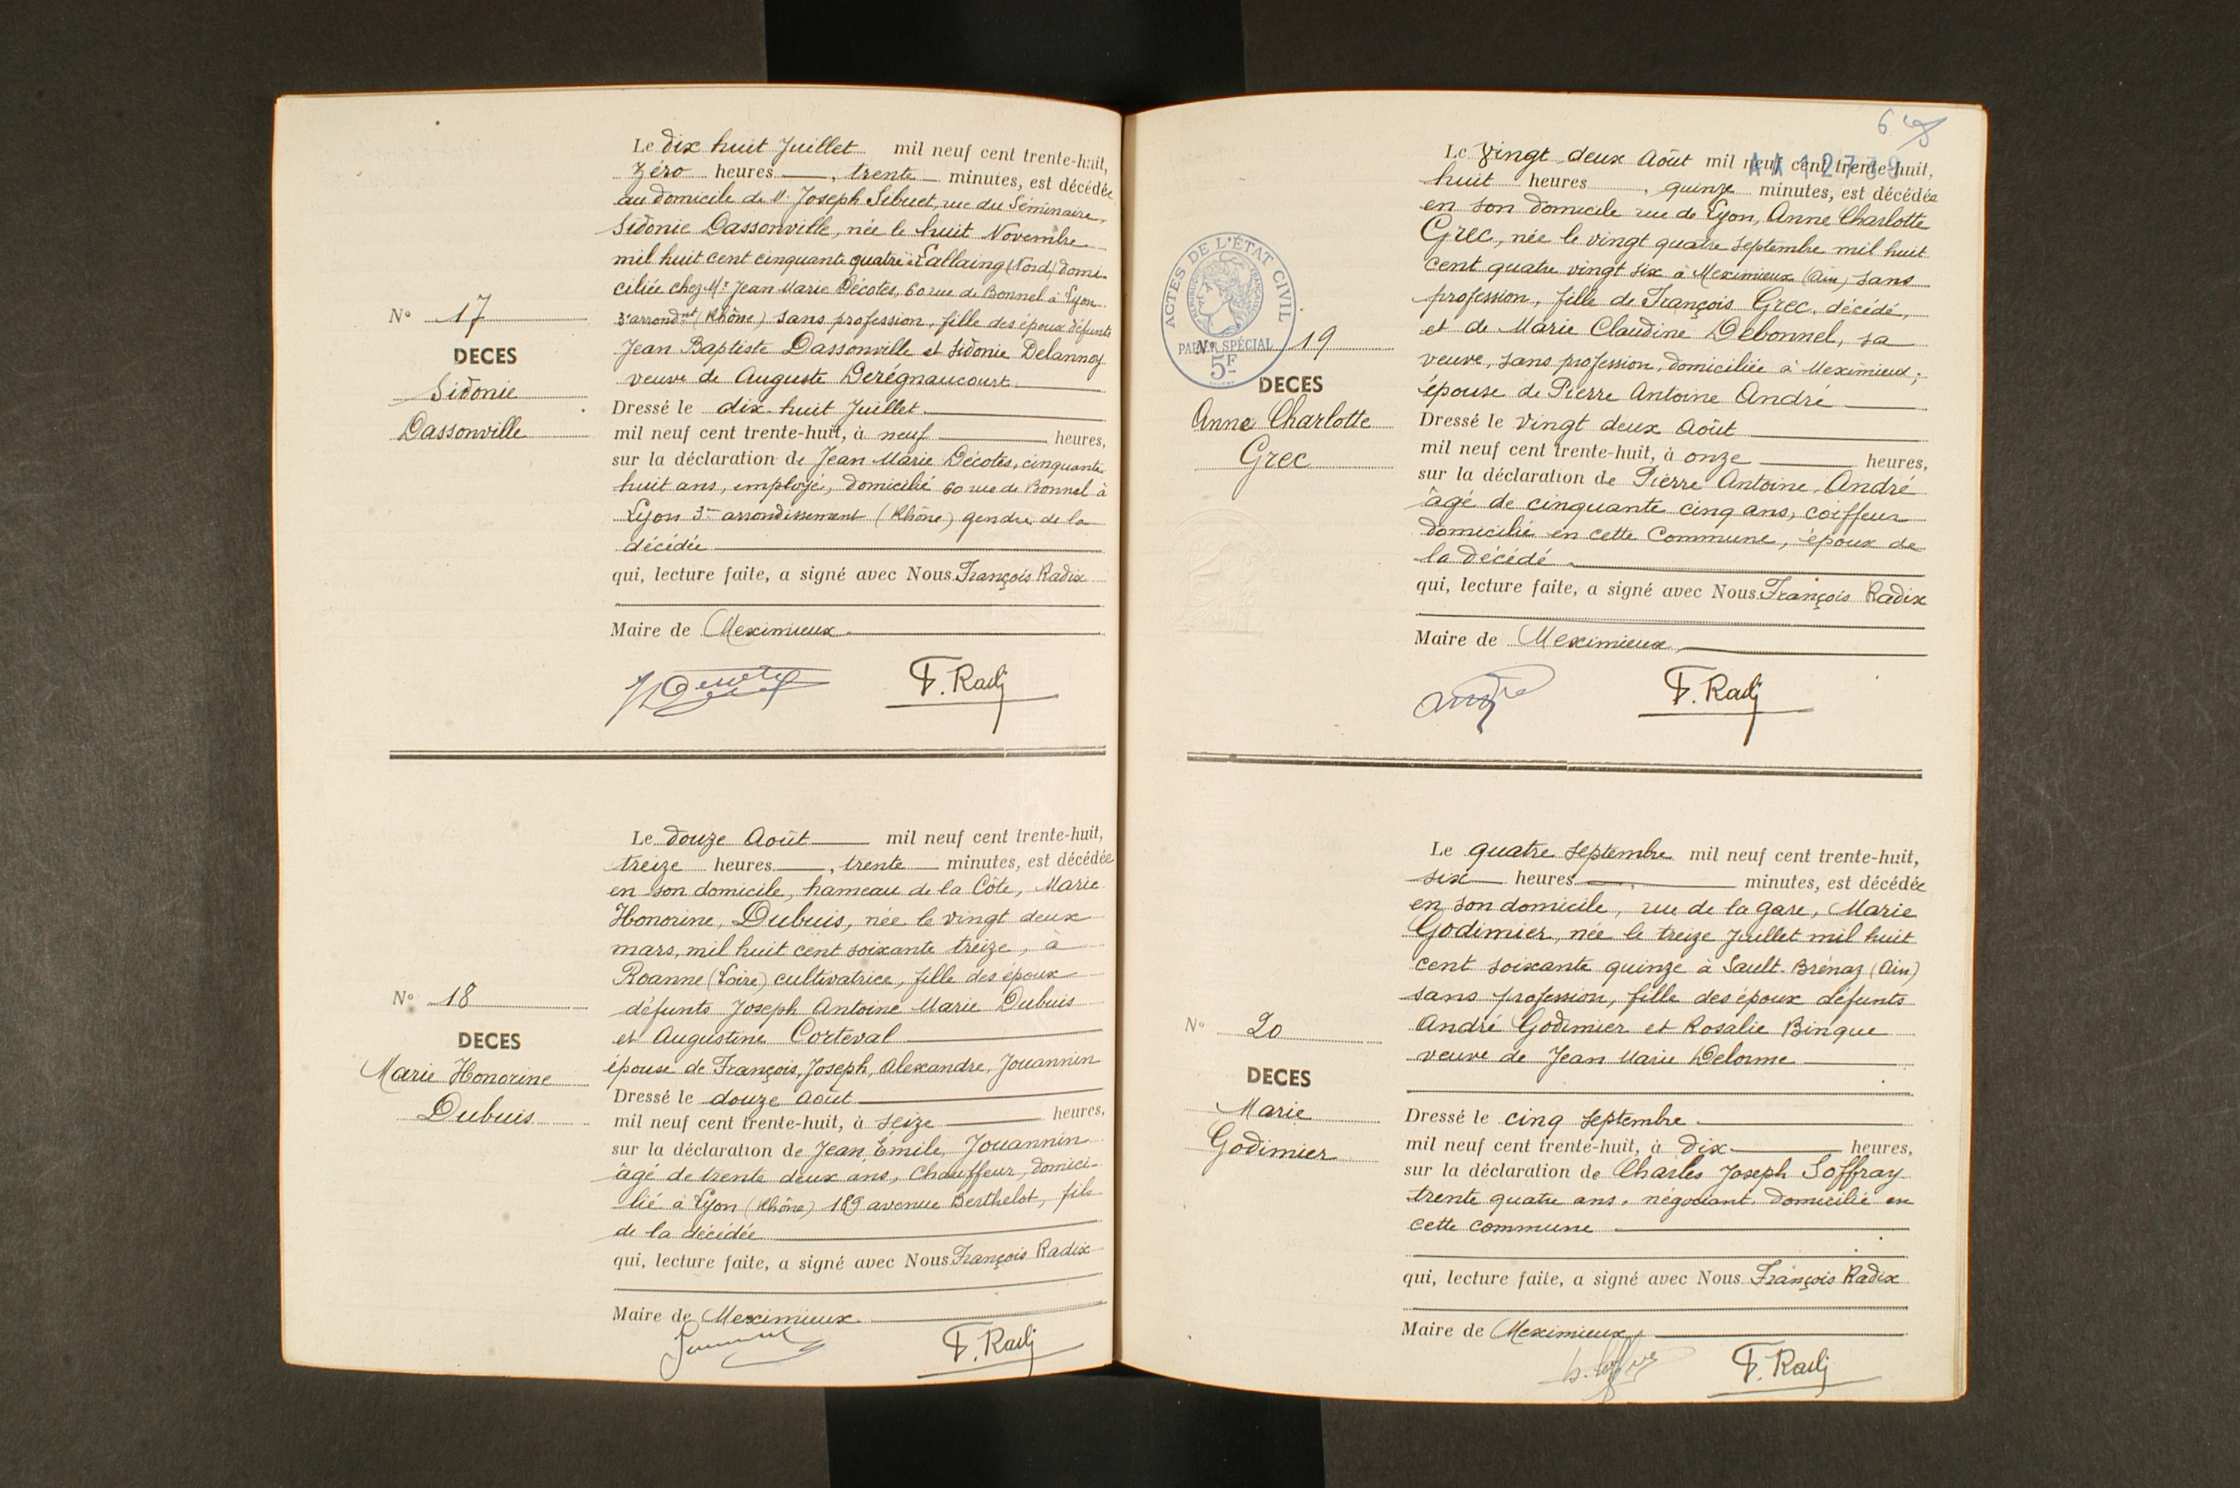 Le dix huit Juillet mil neuf cent trente-huit,
Zéro heures, trente minutes, est décédée
au domicile de Mr Joseph Sibuet, rue du Séminaire,
Sidonie Dassonville, née le huit Novembre
mil huit cent cinquante quatre à Lallaing (Nord) domi-
ciliée chez Mr Jean Marie Décotes, 60 rue de Bonnel à Lyon
3e arrondnt (Rhône) sans profession, fille des époux défunts
Jean Baptiste Dassonville et Sidonie Delannoy
veuve de Auguste Derégnaucourt
Nº 17
DECES
Sidonie
Dassonville
Dressé le dix-huit Juillet
mil neuf cent trente-huit, à neuf heures,
sur la déclaration de Jean Marie Décotes, cinquante
huit ans, employé, domicilié 60 rue de Bonnel à
Lyon 3me arrondissement (Rhône) gendre de la
décédée
qui, lecture faite, a signé avec Nous François Radix
Maire de Meximieux
F. Radix
Le douze Août mil neuf cent trente-huit,
treize heures, trente minutes, est décédée
en son domicile, hameau de la Côte, Marie
Honorine, Dubuis, née le vingt deux
mars, mil huit cent soixante treize, à
Roanne (Loire) cultivatrice, fille des époux
défunts Joseph Antoine Marie Dubuis
et Augustine Corteval
épouse de François, Joseph, Alexandre, Jouannin
Nº 18
DECES
Marie Honorine
Dubuis
Dressé le douze Août
mil neuf cent trente-huit, à seize heures,
sur la déclaration de Jean, Émile, Jouannin
âgé de trente deux ans, Chauffeur, domici-
lié à Lyon (Rhône) 189 avenue Berthelot, fils
de la décédée
qui, lecture faite, a signé avec Nous François Radix
Maire de Meximieux
F. Radix
6
Le Vingt deux Août mil neuf cent trente-huit,
huit heures, quinze minutes, est décédée
en son domicile rue de Lyon, Anne Charlotte
Grec, née le vingt quatre septembre mil huit
cent quatre vingt six à Meximieux (Ain) sans
profession, fille de François Grec, décédé,
et de Marie Claudine Debonnel, sa
veuve, sans profession, domiciliée à Meximieux;
épouse de Pierre Antoine André
ACTES DE L'ÉTAT CIVIL
PAPIER SPÉCIAL
5F
Nº 19
DECES
Anne Charlotte
Grec
Dressé le vingt deux Août
mil neuf cent trente-huit, à onze heures,
sur la déclaration de Pierre Antoine, André
âgé de cinquante cinq ans, coiffeur
domicilié en cette Commune, époux de
la décédé
qui, lecture faite, a signé avec Nous François Radix
Maire de Meximieux
André
F. Radix
Le quatre septembre mil neuf cent trente-huit,
six heures, minutes, est décédée
en son domicile, rue de la gare, Marie
Godimier, née le treize Juillet mil huit
cent soixante quinze à Sault-Brénaz (Ain)
sans profession, fille des époux défunts
André Godimier et Rosalie Binque
veuve de Jean Marie Delorme
Nº 20
DECES
Marie
Godimier
Dressé le cinq septembre
mil neuf cent trente-huit, à dix heures,
sur la déclaration de Charles Joseph Soffray
trente quatre ans, négociant domicilié en
cette commune
qui, lecture faite, a signé avec Nous François Radix
Maire de Meximieux
F. Radix